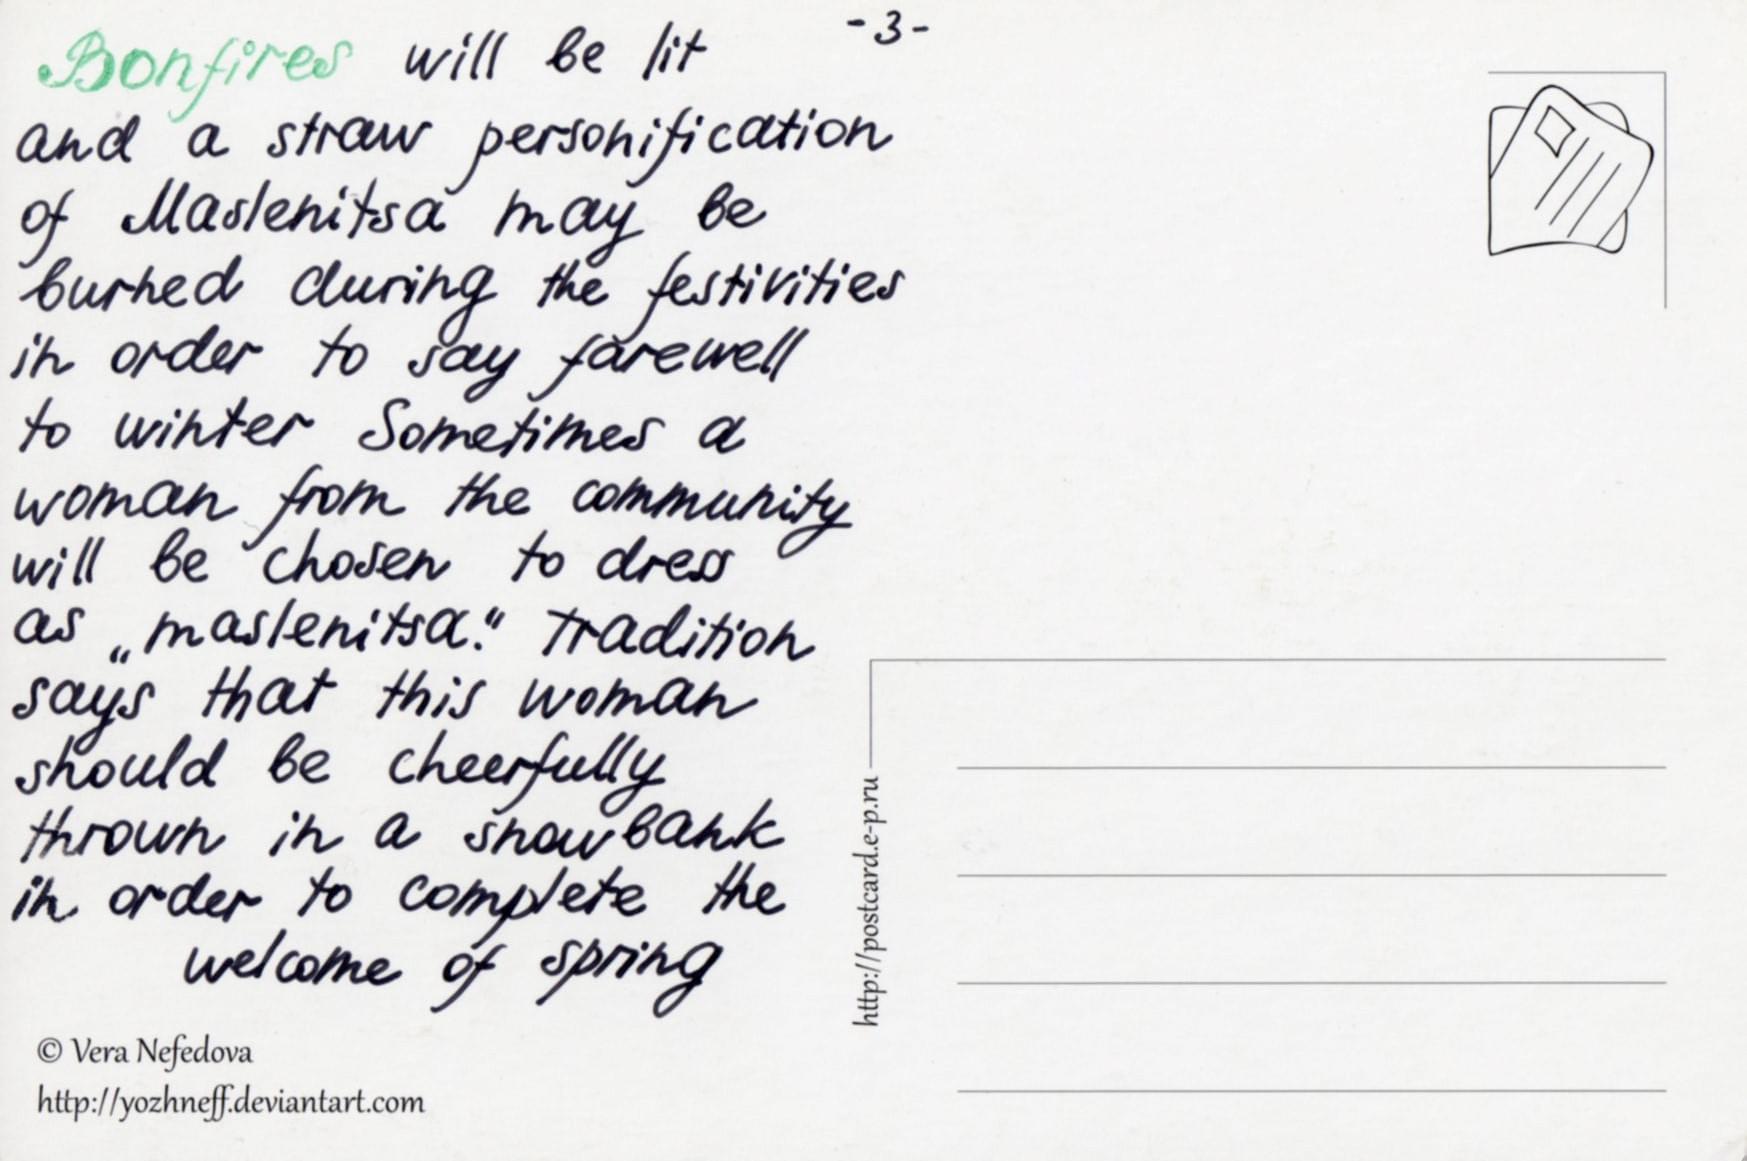 -3-
Bonfires will be lit
and a straw personification
of Maslenitsa may be
burned during the festivities
in order to say farewell
to winter Sometimes a
woman from the community
will be chosen to dress
as „maslenitsa.“ Tradition
says that this woman
should be cheerfully
thrown in a snowbank
in order to complete the
welcome of spring
© Vera Nefedova
http://yozhneff.deviantart.com
http://postcard.e-p.ru